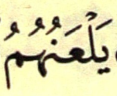 يَلْعَنُهُمُ